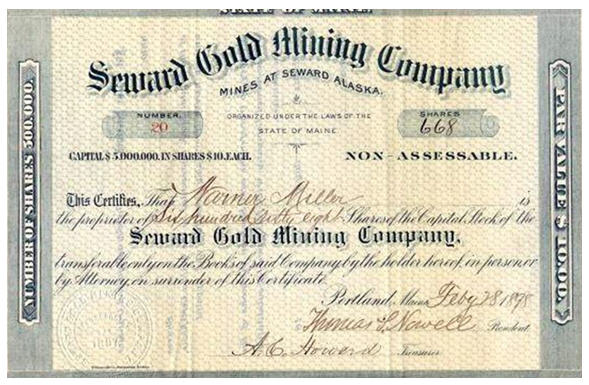 STATE OF MAINE.
Seward Gold Mining Company
MINES AT SEWARD ALASKA.
NUMBER.
20
ORGANIZED UNDER THE LAWS OF THE
STATE OF MAINE.
SHARES
668
CAPITAL $ 5,000,000. IN SHARES $10. EACH.
NON-ASSESSABLE.
NUMBER OF SHARES 500,000.
PAR VALUE $10.00.
This Certifies, That Warner Miller is
the proprietor of Six hundred sixty eight Shares of the Capital Stock of the
Seward Gold Mining Company,
transferable only on the Books of said Company by the holder hereof, in person or
by Attorney, on surrender of this Certificate.
Portland, Maine Feby 28 1898
Thomas S Nowell President
A. C. Howard Treasurer